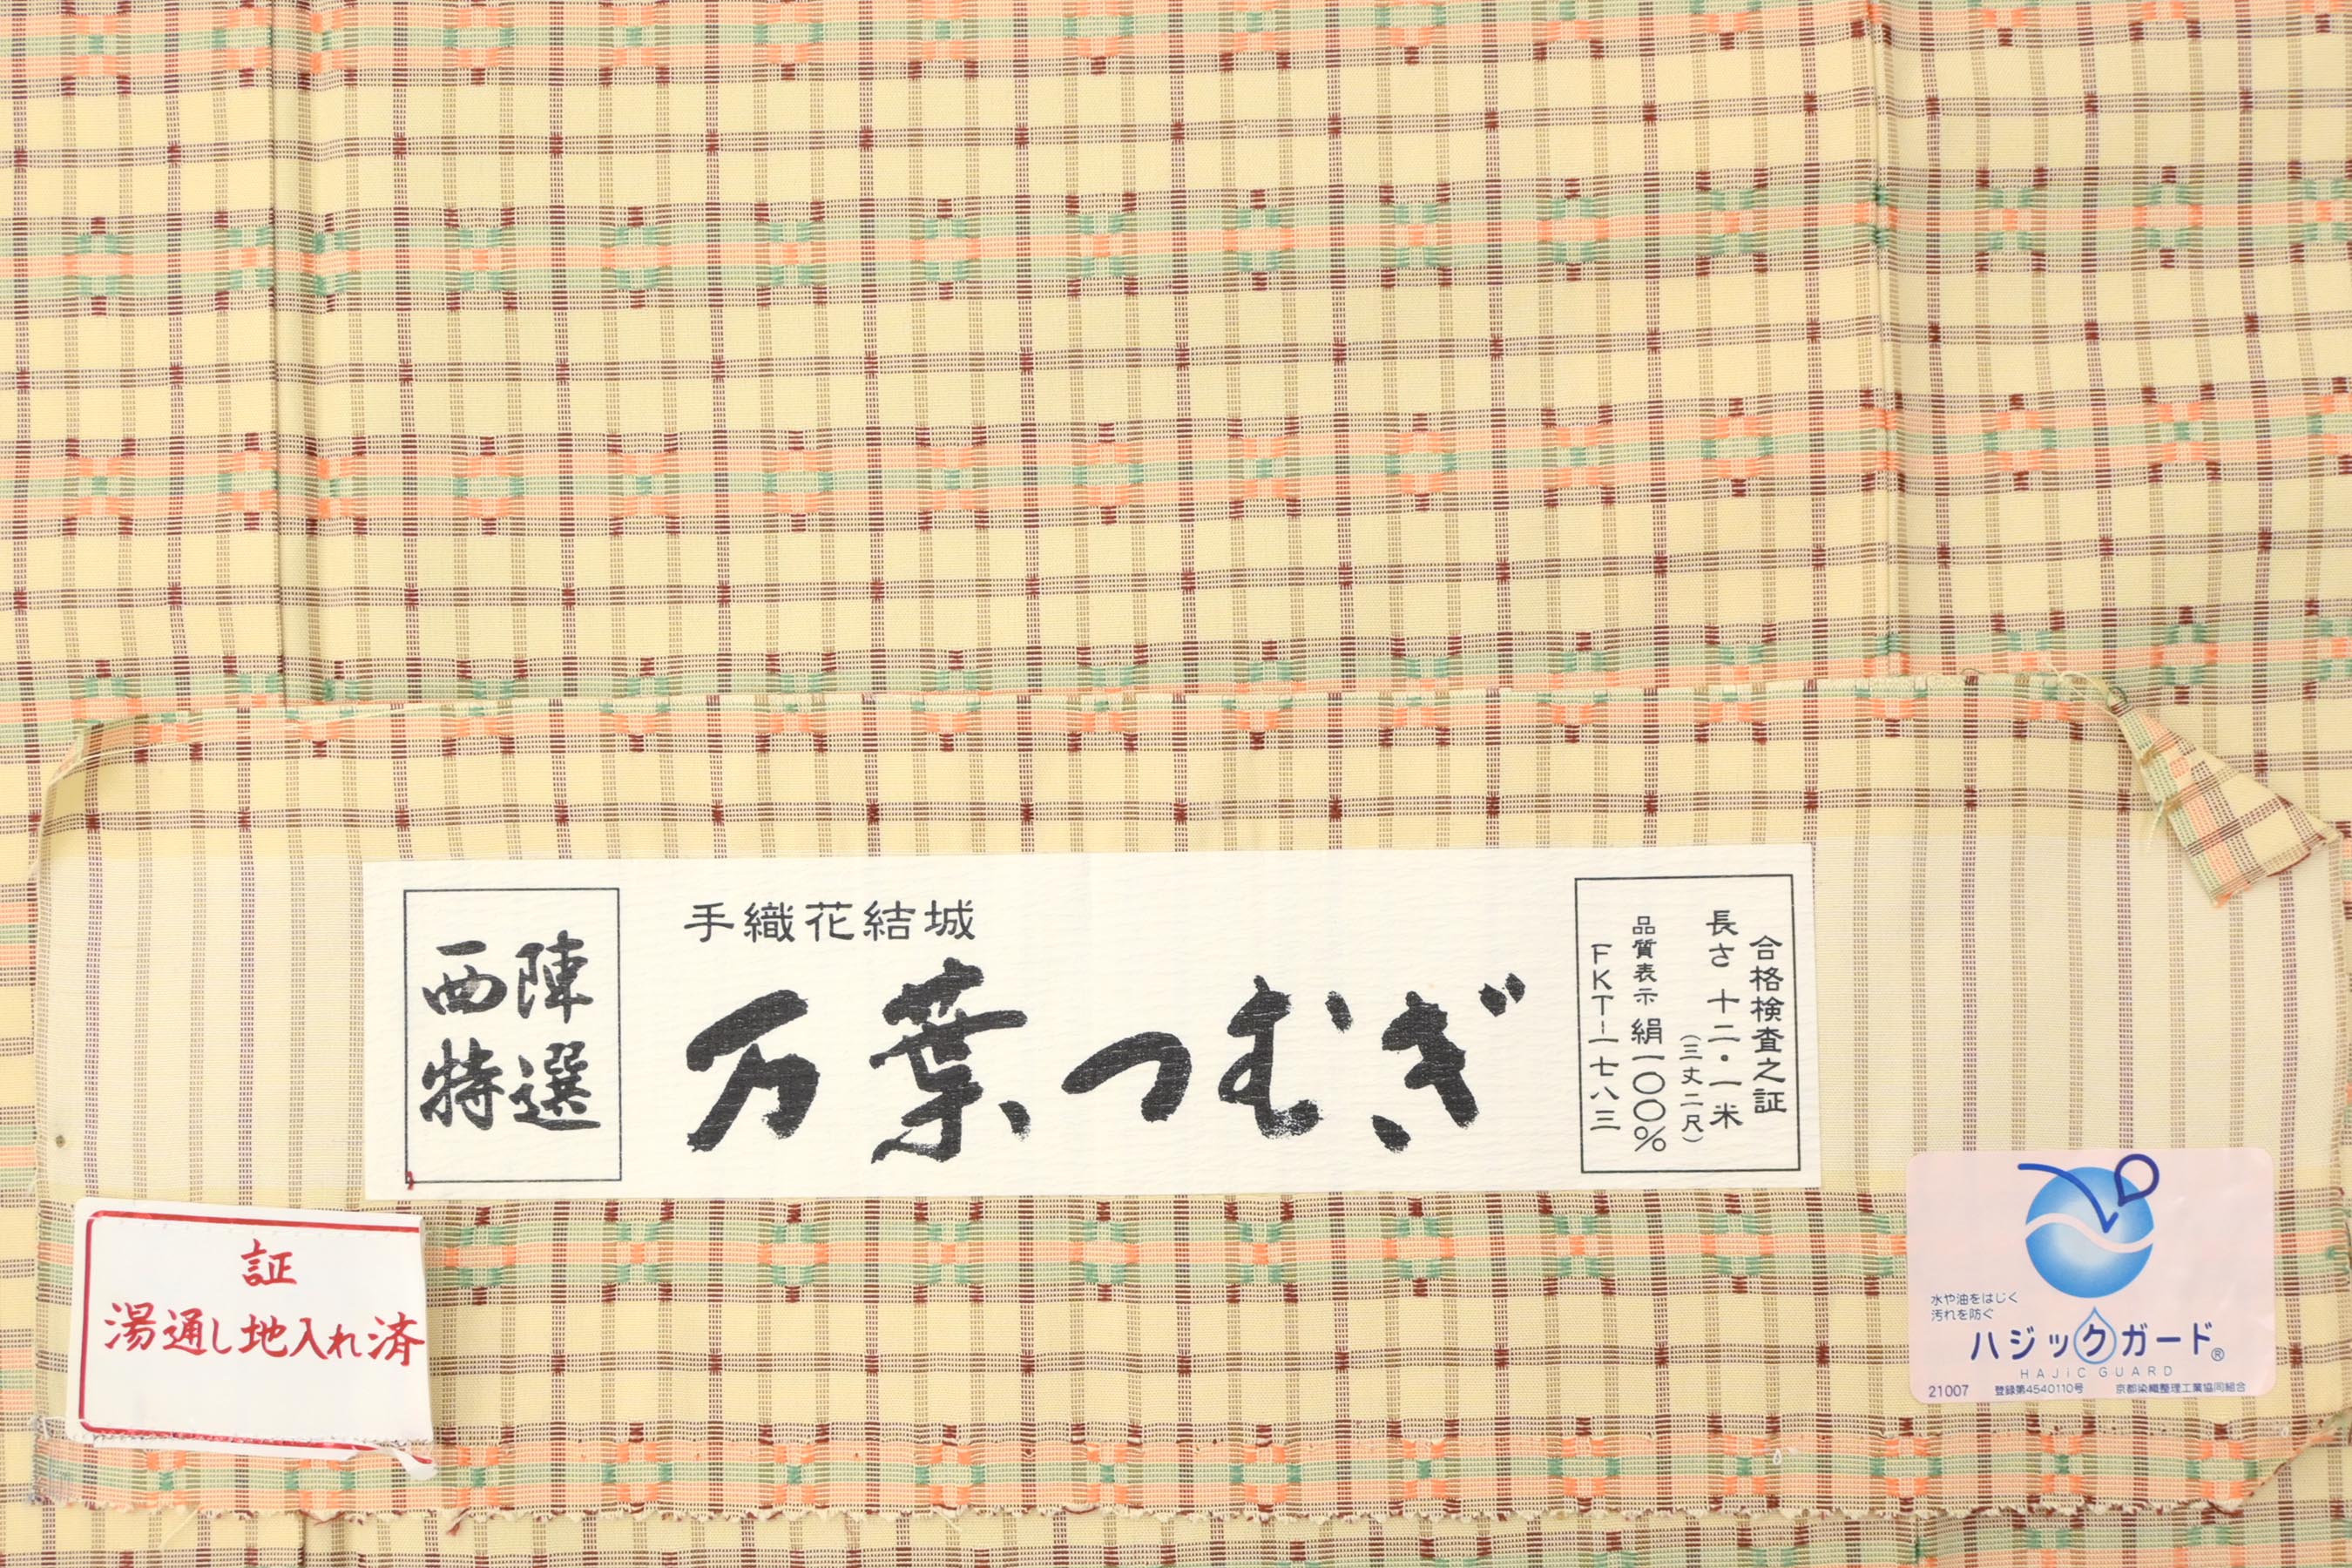 西陣
特選
手織花結城
万葉つむぎ
合格検査之証
長さ 十二・一米
(三丈二尺)
品質表示 絹一〇〇%
FKT-一七八三
証
湯通し地入れ済
水や油をはじく
汚れを防ぐ
ハジックガード®
HAJiC GUARD
21007 登録第4540110号 京都染織整理工業協同組合